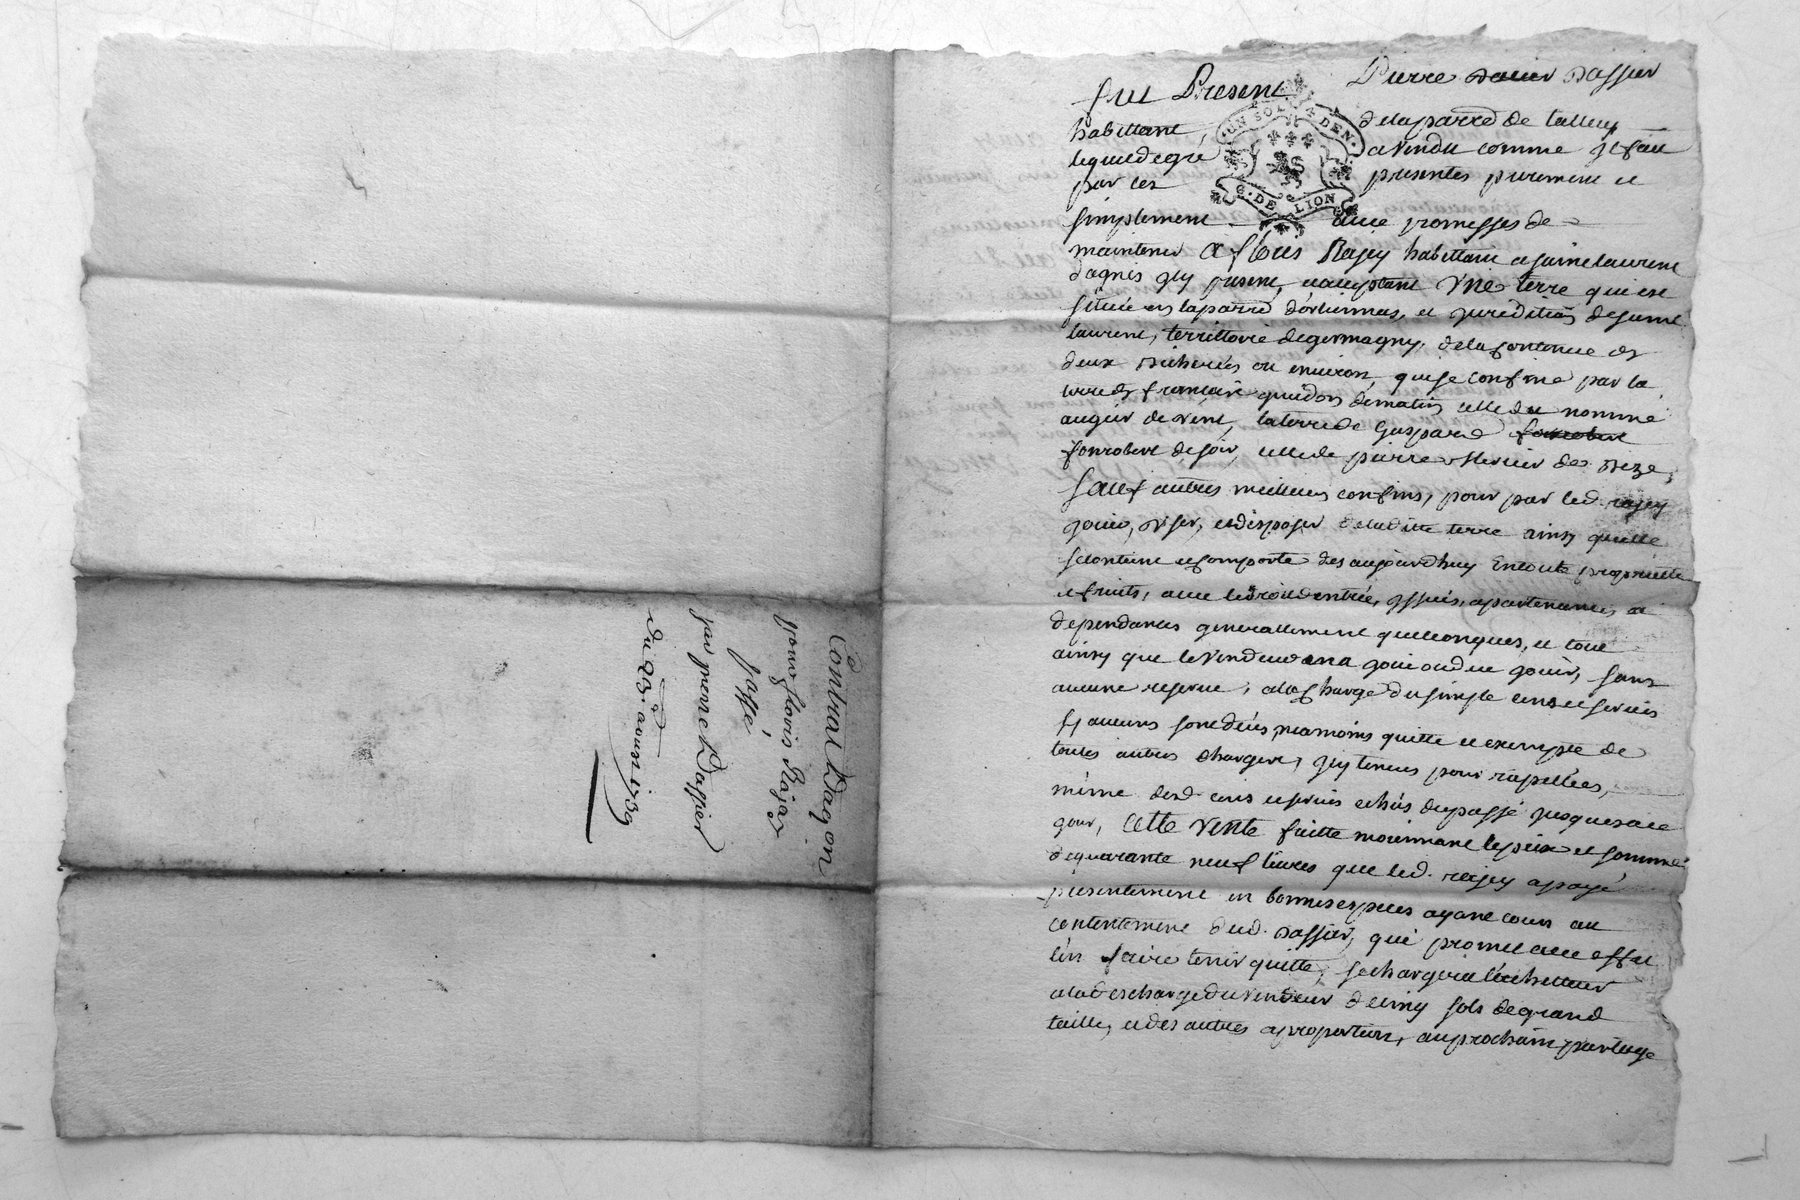 Contrat D'aqon
pour floris Rajat
passé
par pierre Dassier
du 23.e aoust 1739
fut Present Pierre Dassier
UN SOL 4 DEN.
G. DE LION
habittant, delaparre de talluy
lequel degré avendu comme jl fait
par ces presentes purement et
simplement avec promesses de
maintenir A floris Rajey habittant a saint laurent
dagnis jcy present, et acceptant Vne terre qui est
situeé en laparre dorliennas, et jurediction de saint
laurent, territoire degermagny, delacontenue de
deux bicherées ou environ, quise confine par la
terre de françois guidon dematin celle du nommé
augier de vent, laterre de Gaspard
fonrobert de soir, celle de pierre Mercier de bize,
sauf autres meilleurs confins, pour par led. rajey
jouir, vser, et disposer deladitte terre ainsy quelle
secontient et comporte des aujourdhuy En toute proprietté
et fruits, avec ledroit dentrée, jssües, apartenances et
dependances generallement quelconques, et tout
ainsy que levendeur en a joui ou deu jouir, sans
aucune reserve, alacharge du simple cens et servis
sy aucuns sont deus, neamoins quitte et exempte de
toutes autres charges, jcy tenues pour rapellées,
même desd. cens et servis echûs dupassé jusques a ce
jour, Cette Vente faitte moiennant leprix et somme
dequarante neuf livres que led. rajey a payé
presentement en bonnes especes ayant cours au
contentement dud. Dassier, qui promet avec effet
l'en faire tenir quitte, sechargera l'achetteur
aladescharge du vendeur de cinq sols de grand
taille, et des autres a proportion, auprochain partage